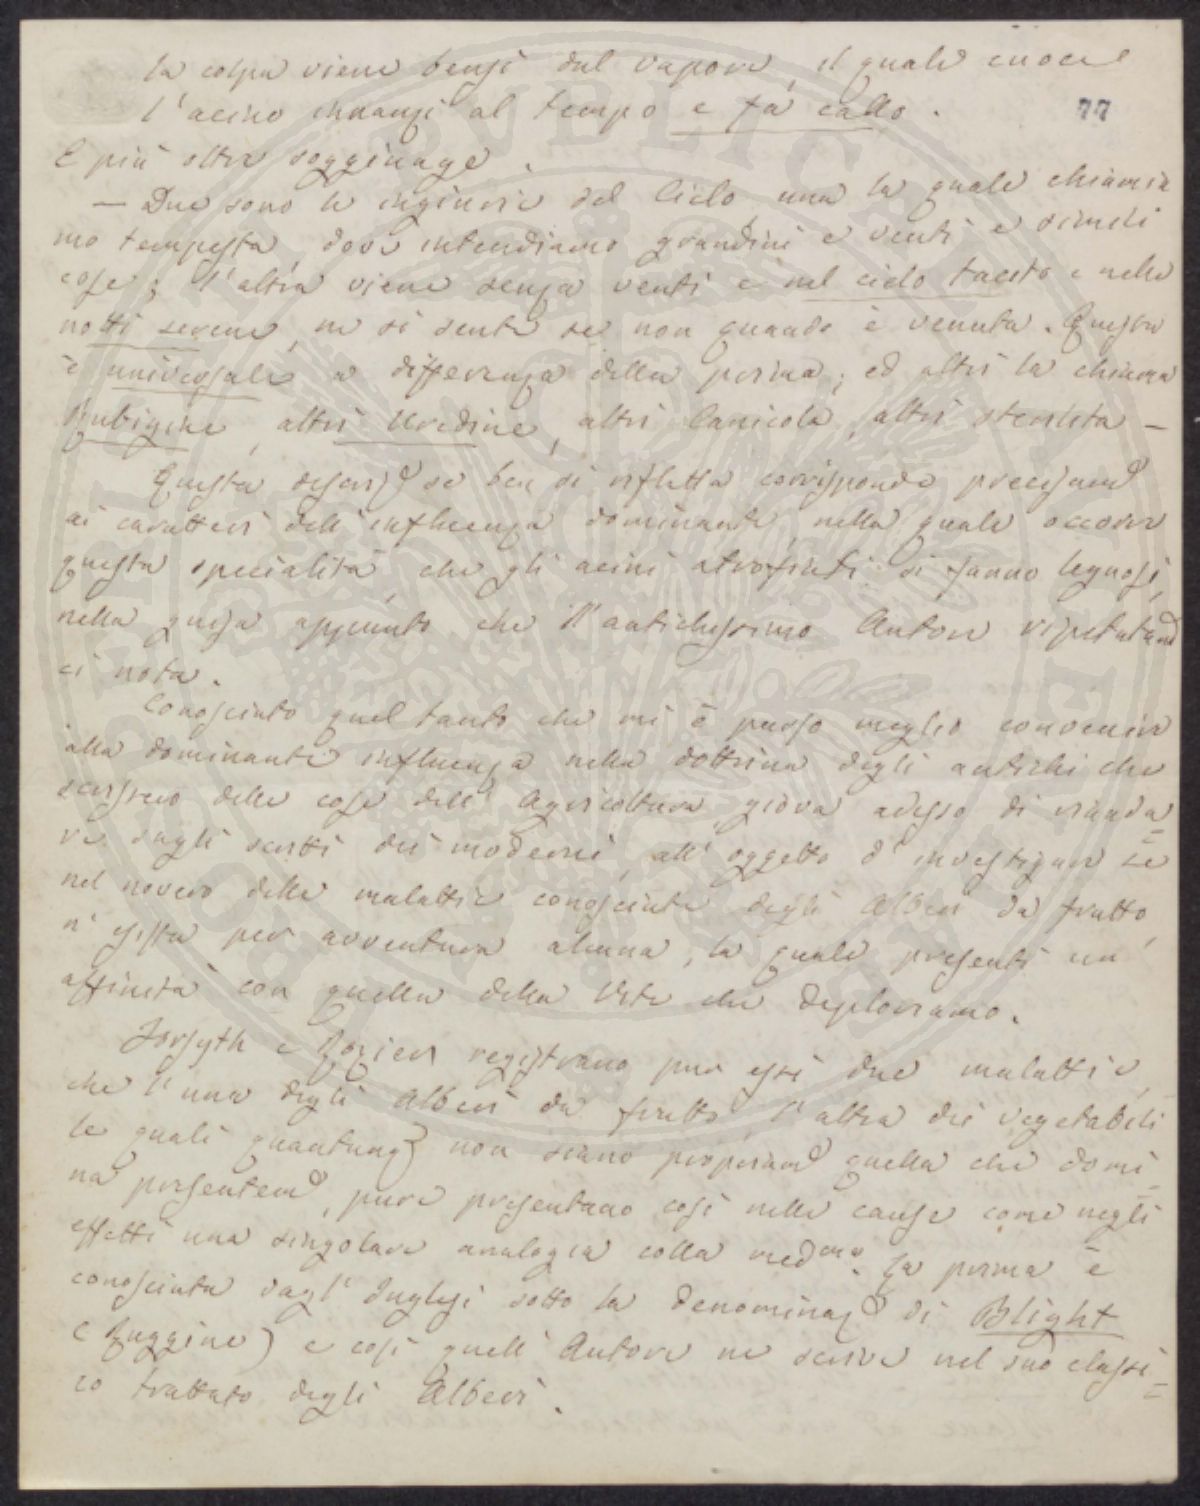 la colpa viene bensì dal vapore, il quale cuoce
l'acino innanzi al tempo e fà callo.
77
E più oltre soggiunge.
— Due sono le ingiurie del Cielo una la quale chiamia
mo tempesta, dove intendiamo grandini e venti e simili
cose; l'altra viene senza venti e nel cielo tacito e nelle
notti serene, ne si sente se non quando è venuta. Questa
è universale a differenza della prima; ed altri la chiama
Rubigine, altri Uredine, altri Canicola, altri sterilità —
Questa descriz.e se ben si rifletta corrisponde precisam.e
ai caratteri dell'influenza dominante, nella quale occorre
questa specialità, che gli acini atrofisati si fanno legnosi,
nella guisa appunto che l'antichissimo Autore ripetutam.e
ci nota.
Conosciuto quel tanto che mi è parso meglio convenire
alla dominante influenza nella dottrina degli antichi che
scrissero delle cose dell'Agricoltura, giova adesso di rianda=
re sugli scritti dei moderni, all'oggetto d'investigare se
nel novero delle malattie conosciute degli Alberi da frutto,
n'esista per avventura alcuna, la quale presenti un'
affinità con quella della Vite che deploriamo.
Forsyth e Rozier registrano pur essi due malattie,
che l'una degli Alberi da frutto, l'altra dei vegetabili
le quali quantunq. non siano propriam.e quella che domi=
na presentem.e, pure presentano così nelle cause come negli
effetti una singolare analogia colla med.ma. La prima è
conosciuta dagl'Inglesi sotto la denominaz.e di Blight
(Ruggine) e così quell'Autore ne scrive nel suo classi=
co trattato degli Alberi.